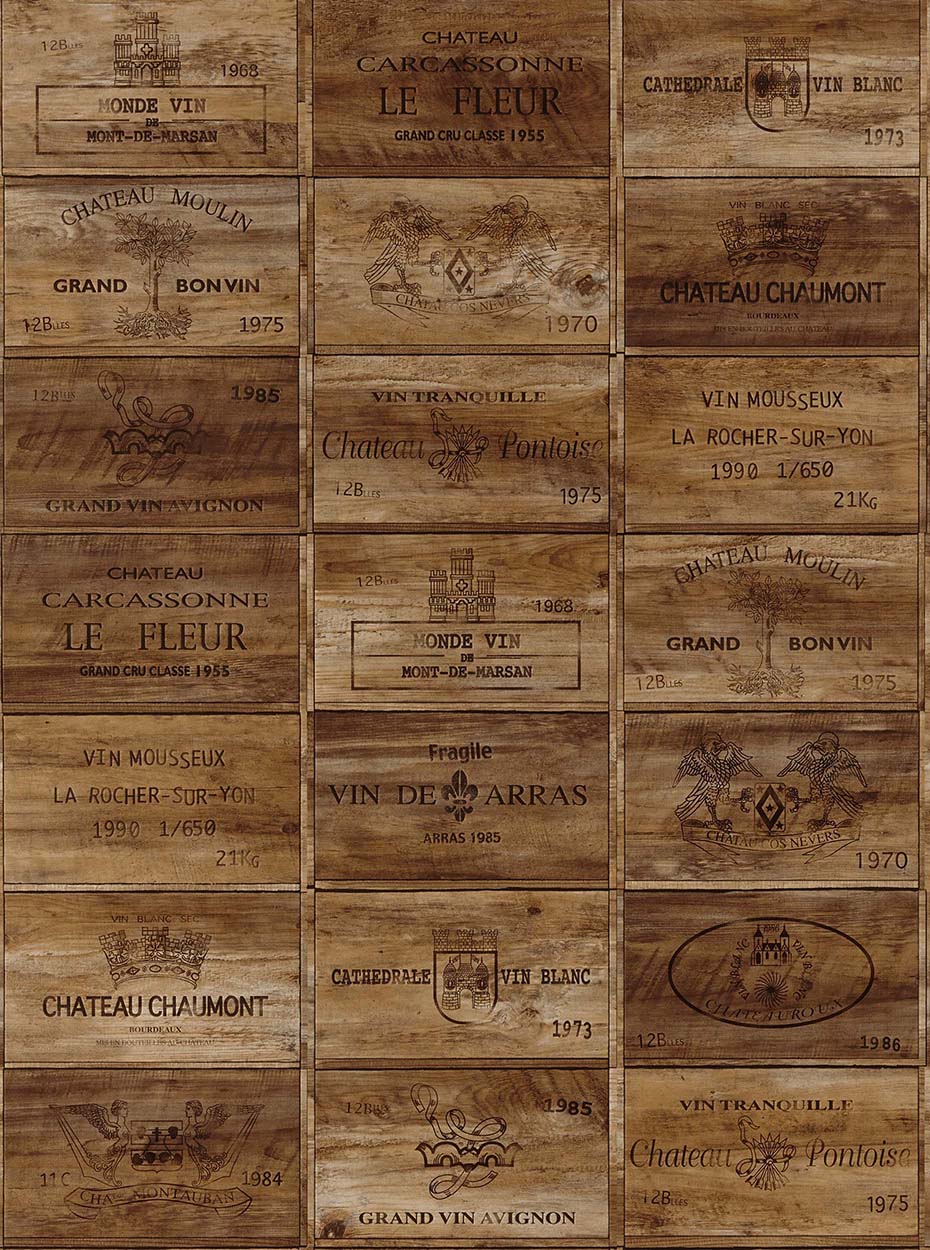 12Blles
1968
MONDE VIN
DE
MONT-DE-MARSAN
CHATEAU
CARCASSONNE
LE FLEUR
GRAND CRU CLASSE 1955
CATHEDRALE VIN BLANC
1973
CHATEAU MOULIN
GRAND BON VIN
12Blles 1975
CHATAU COS NEVERS
1970
VIN BLANC SEC
CHATEAU CHAUMONT
BOURDEAUX
MIS EN BOUTEILLES AU CHATEAU
12Blles 1985
GRAND VIN AVIGNON
VIN TRANQUILLE
Chateau Pontoise
12Blles 1975
VIN MOUSSEUX
LA ROCHER-SUR-YON
1990 1/650
21KG
CHATEAU
CARCASSONNE
LE FLEUR
GRAND CRU CLASSE 1955
12Blles
1968
MONDE VIN
DE
MONT-DE-MARSAN
CHATEAU MOULIN
GRAND BON VIN
12Blles 1975
VIN MOUSSEUX
LA ROCHER-SUR-YON
1990 1/650
21KG
Fragile
VIN DE ARRAS
ARRAS 1985
CHATAU COS NEVERS
1970
VIN BLANC SEC
CHATEAU CHAUMONT
BOURDEAUX
MIS EN BOUTEILLES AU CHATEAU
CATHEDRALE VIN BLANC
1973
1986
VIN BLANC
CHATEAUROUX
12Blles 1986
11C 1984
CHA MONTAUBAN
12Blles 1985
GRAND VIN AVIGNON
VIN TRANQUILLE
Chateau Pontoise
12Blles 1975